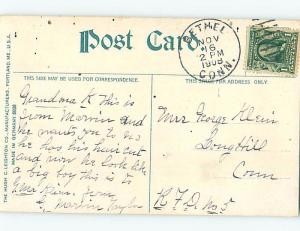 Post Card
BETHEL
NOV
6
2 PM
1909
CONN.
THIS SIDE MAY BE USED FOR CORRESPONDENCE.
THIS SIDE IS FOR ADDRESS ONLY.
THE HUGH C. LEIGHTON CO., MANUFACTURERS, PORTLAND, ME., U.S.A.
MADE IN GERMANY
Grandma K this is
from Marvin and
he wants you to no
he has his haircut
and now he looks like
a big boy this is to
from
Marvin Taylor
Mrs George Klein
Long Hill
Conn
R F D. No 5